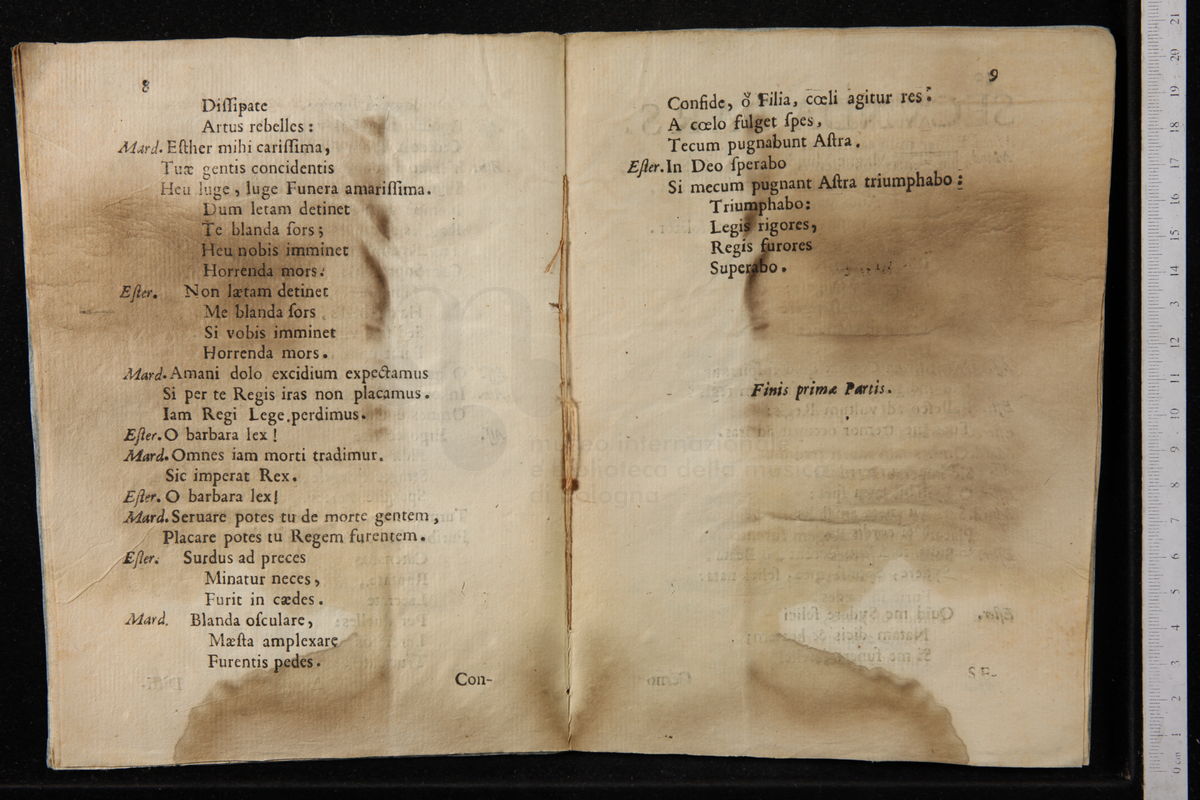 8
Diſſipate
Artus rebelles :
Mard. Eſther mihi cariſſima,
Tuæ gentis concidentis
Heu luge, luge Funera amariſſima.
Dum letam detinet
Te blanda ſors ;
Heu nobis imminet
Horrenda mors.
Eſter. Non lætam detinet
Me blanda ſors
Si vobis imminet
Horrenda mors.
Mard. Amani dolo excidium expectamus
Si per te Regis iras non placamus.
Iam Regi Lege perdimus.
Eſter. O barbara lex !
Mard. Omnes iam morti tradimur.
Sic imperat Rex.
Eſter. O barbara lex!
Mard. Seruare potes tu de morte gentem,
Placare potes tu Regem furentem.
Eſter. Surdus ad preces
Minatur neces,
Furit in cædes.
Mard. Blanda oſculare,
Mæſta amplexare
Furentis pedes.
Con-
9
Confide, ò Filia, cœli agitur res :
A cœlo fulget ſpes,
Tecum pugnabunt Aſtra.
Eſter. In Deo ſperabo
Si mecum pugnant Aſtra triumphabo :
Triumphabo:
Legis rigores,
Regis furores
Superabo.
Finis primæ Partis.
SE-
museo internazionale
e biblioteca della musica
di bologna